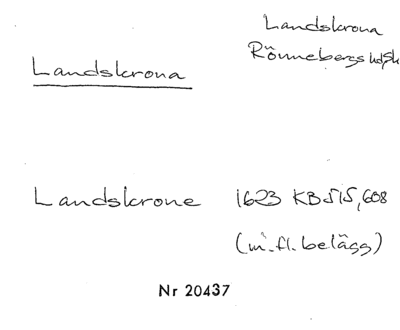 Landskrona
Rönnebergs hdSk
Landskrona
Landskrone 1623 KB 515,608
(m.fl. belägg)
Nr 20437